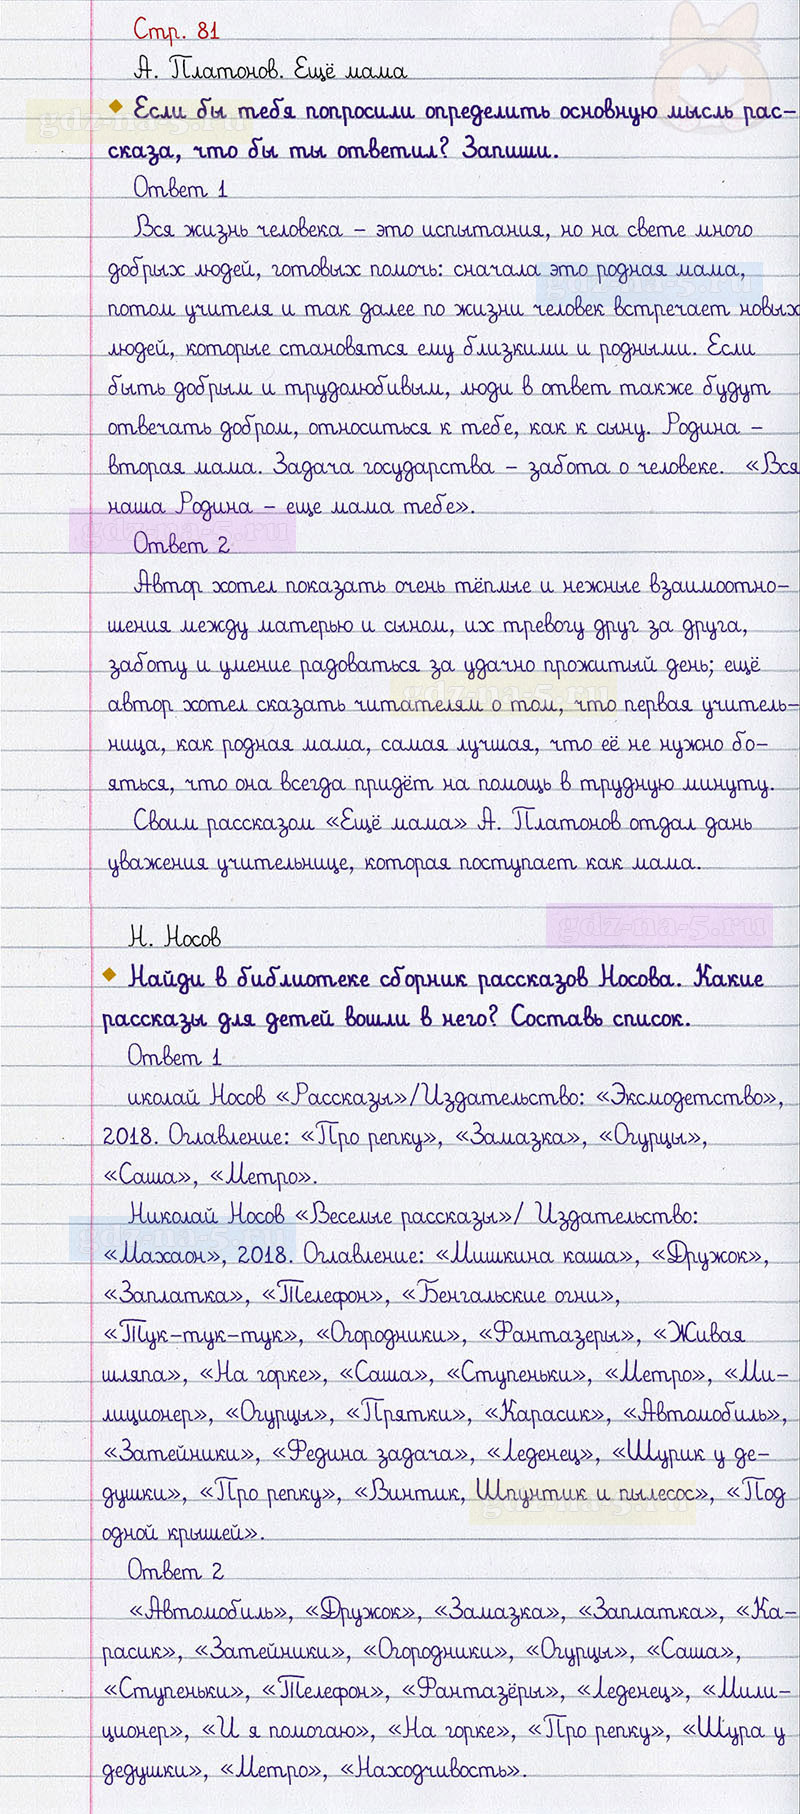 Стр. 81
А. Платонов. Ещё мама
Если бы тебя попросили определить основную мысль рас-
сказа, что бы ты ответил? Запиши.
gdz-na-5.ru
Ответ 1
Вся жизнь человека – это испытания, но на свете много
добрых людей, готовых помочь: сначала это родная мама,
gdz-na-5.ru
потом учителя и так далее по жизни человек встречает новых
людей, которые становятся ему близкими и родными. Если
быть добрым и трудолюбивым, люди в ответ также будут
отвечать добром, относиться к тебе, как к сыну. Родина –
вторая мама. Задача государства – забота о человеке. «Вся
наша Родина – еще мама тебе».
gdz-na-5.ru
Ответ 2
Автор хотел показать очень тёплые и нежные взаимоотно-
шения между матерью и сыном, их тревогу друг за друга,
заботу и умение радоваться за удачно прожитый день; ещё
gdz-na-5.ru
автор хотел сказать читателям о том, что первая учитель-
ница, как родная мама, самая лучшая, что её не нужно бо-
яться, что она всегда придёт на помощь в трудную минуту.
Своим рассказом «Ещё мама» А. Платонов отдал дань
уважения учительнице, которая поступает как мама.
gdz-na-5.ru
Н. Носов
Найди в библиотеке сборник рассказов Носова. Какие
рассказы для детей вошли в него? Составь список.
Ответ 1
иколай Носов «Рассказы»/Издательство: «Эксмодетство»,
2018. Оглавление: «Про репку», «Замазка», «Огурцы»,
«Саша», «Метро».
Николай Носов «Веселые рассказы»/ Издательство:
gdz-na-5.ru
«Махаон», 2018. Оглавление: «Мишкина каша», «Дружок»,
«Заплатка», «Телефон», «Бенгальские огни»,
«Тук-тук-тук», «Огородники», «Фантазеры», «Живая
шляпа», «На горке», «Саша», «Ступеньки», «Метро», «Ми-
лиционер», «Огурцы», «Прятки», «Карасик», «Автомобиль»,
«Затейники», «Федина задача», «Леденец», «Шурик у де-
душки», «Про репку», «Винтик, Шпунтик и пылесос», «Под
gdz-na-5.ru
одной крышей».
Ответ 2
«Автомобиль», «Дружок», «Замазка», «Заплатка», «Ка-
расик», «Затейники», «Огородники», «Огурцы», «Саша»,
«Ступеньки», «Телефон», «Фантазёры», «Леденец», «Мили-
ционер», «И я помогаю», «На горке», «Про репку», «Шура у
дедушки», «Метро», «Находчивость».